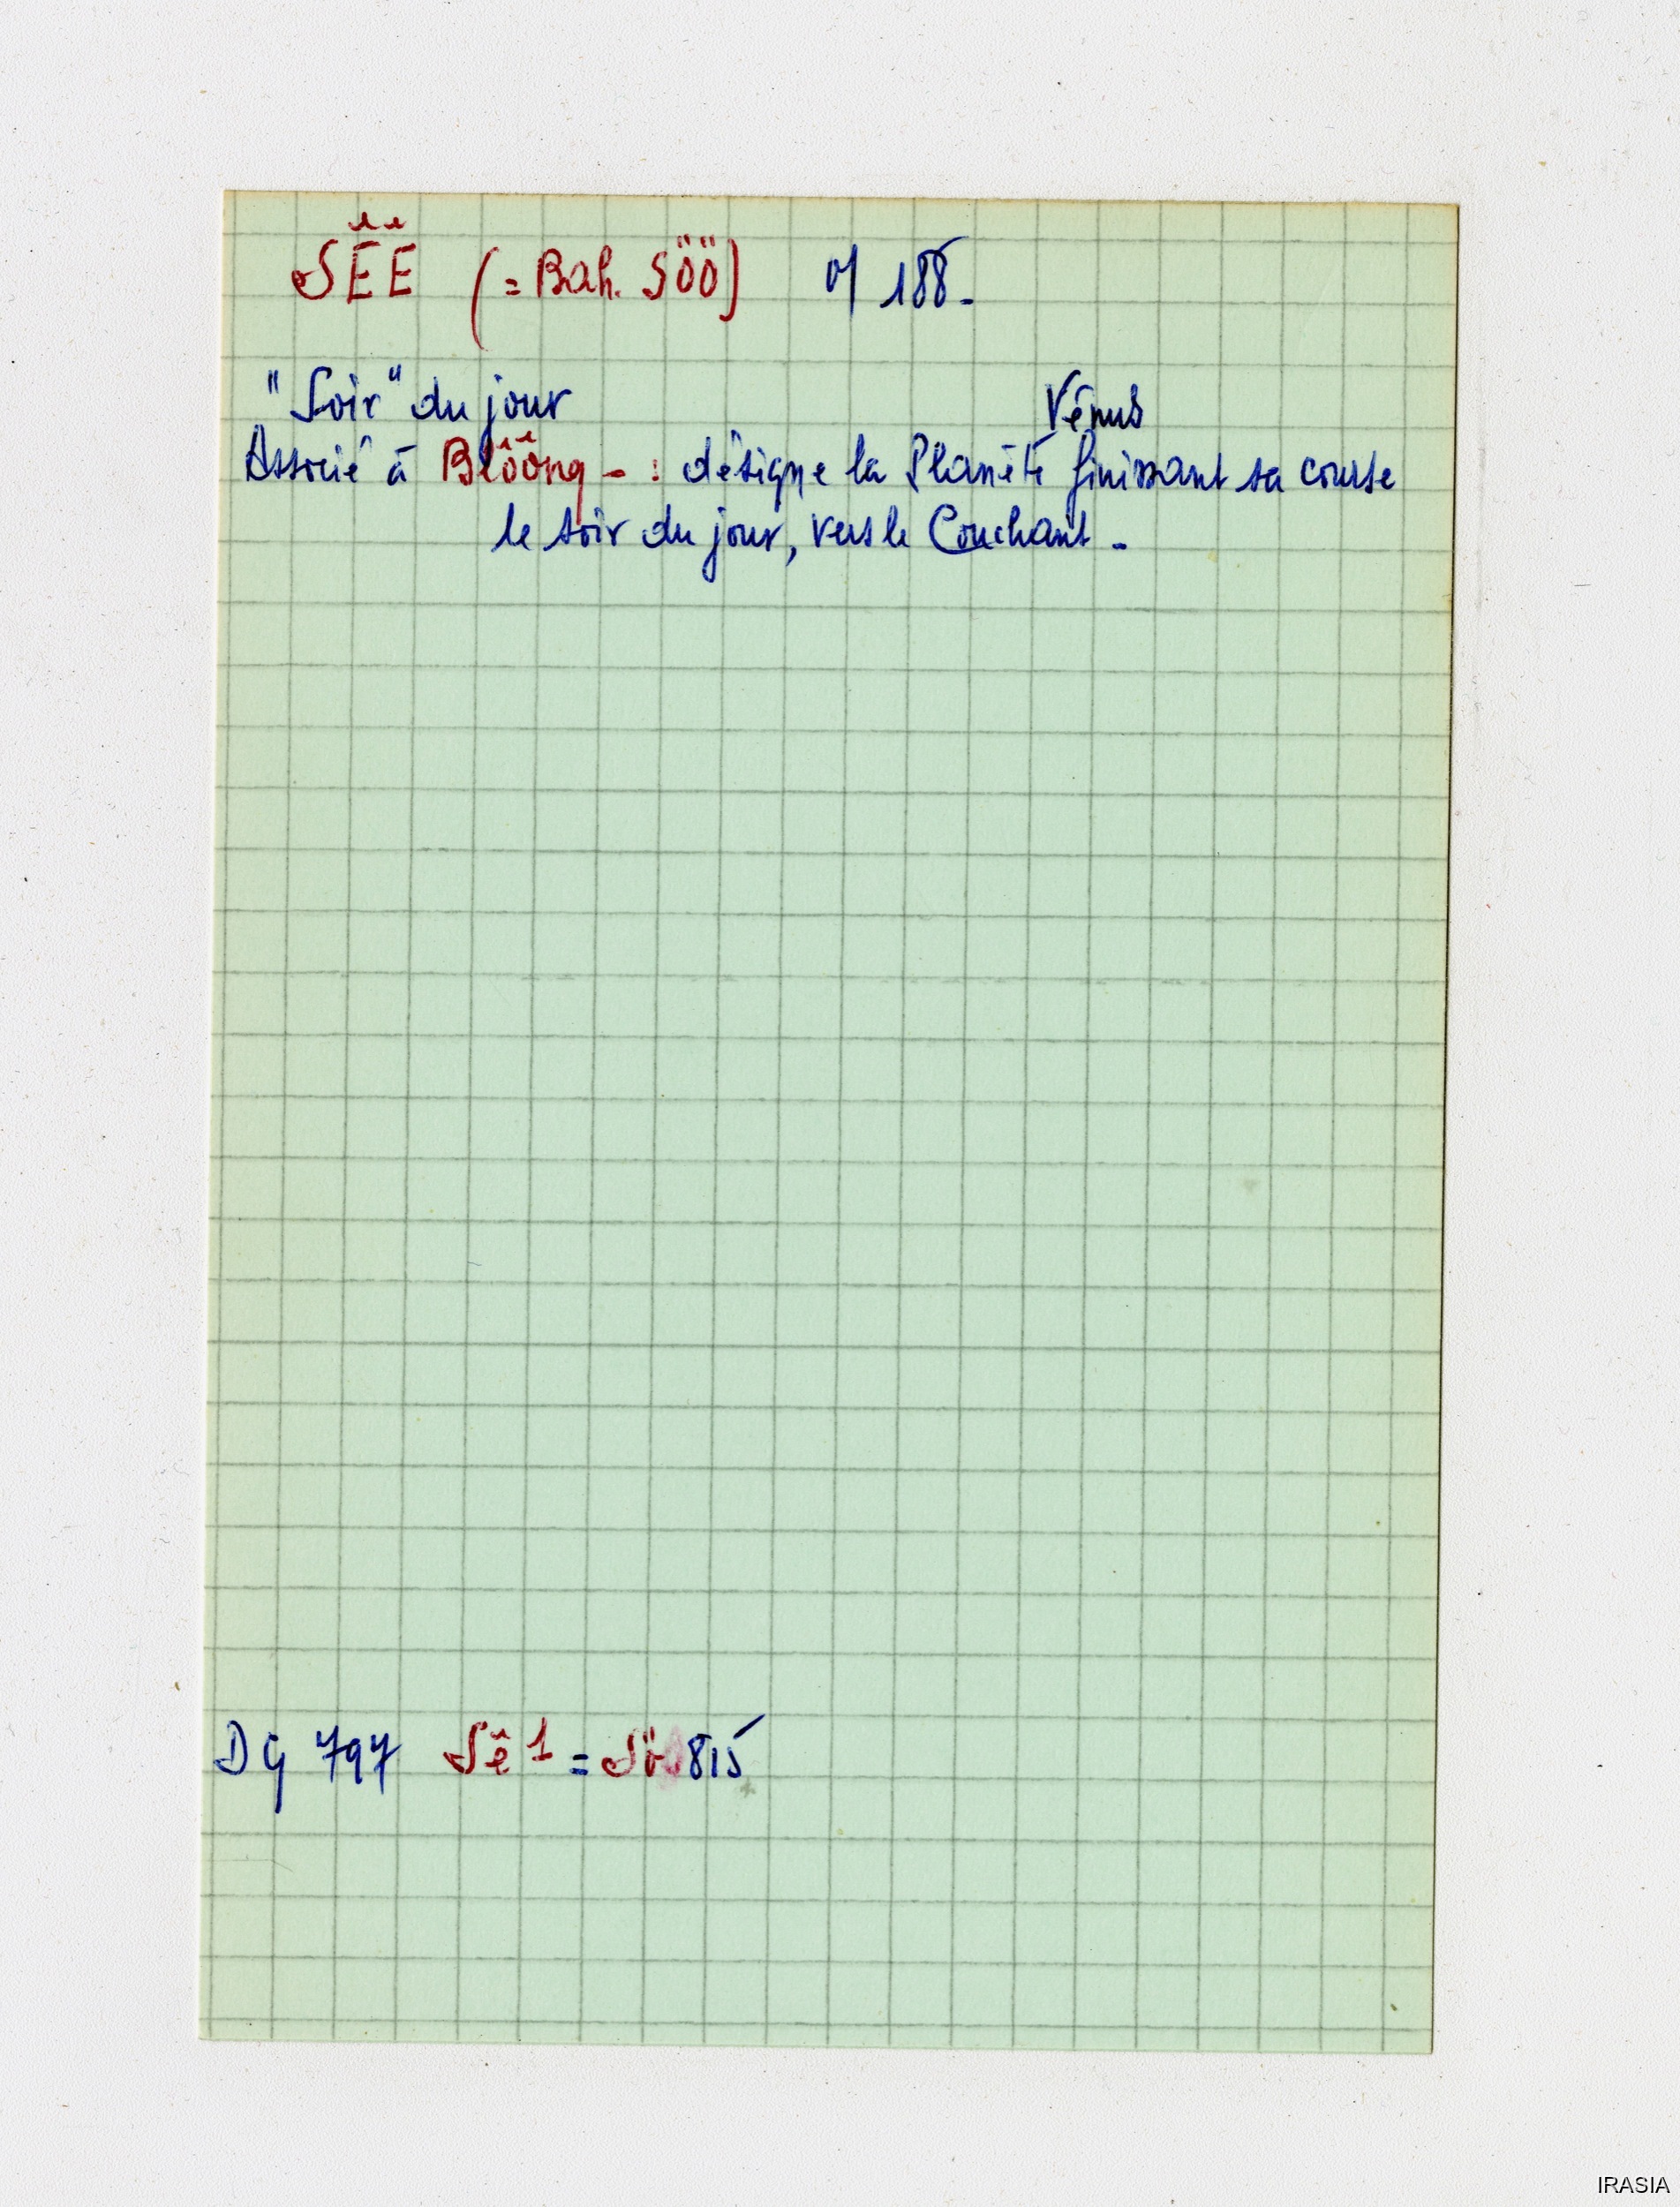 SÊÊ (= Bah. SÖÖ) 188-
"Soir" du jour
Vénus
Associé à Blôông - : désigne la Planète finissant sa course
le soir du jour, vers le Couchant -
DG 797 Sê 1 = Sö 815
IRASIA